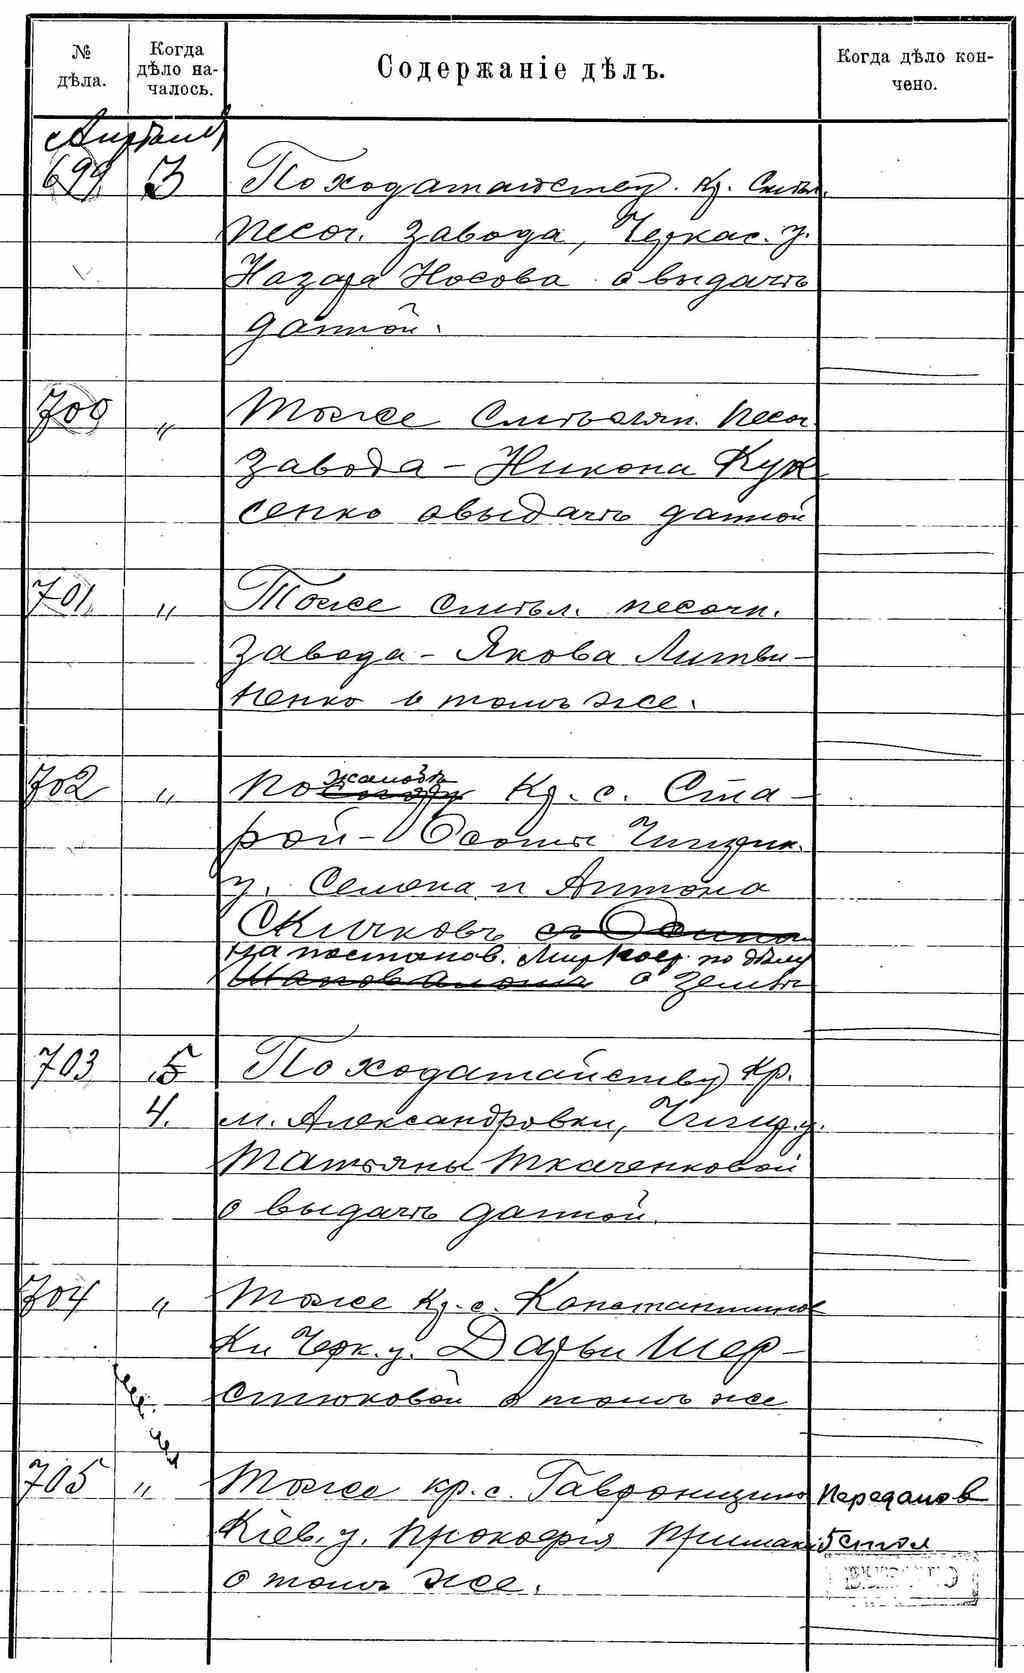 № дѣла.
Когда дѣло на-
чалось.
Содержаніе дѣлъ.
Когда дѣло кон-
чено.
Апрѣль
699 3 По ходатайству кр. Смѣл.
Песоч. завода, Черкас. у.
Назара Носова о выдачѣ
данной.
700 " Тоже Смѣлян. Песоч.
завода - Никона Кук
сенко о выдачѣ данной
701 " Тоже Смѣл. песочн.
завода - Якова Литви-
ненко о томъ же.
702 " По жалобѣ Кр. с. Ста-
рой-Осоты Чигирин.
у. Семена и Антона
Скичковъ съ Осипа
на постанов. Мир. Поср. по дѣлу
о землѣ
703 5 По ходатайству Кр.
4. м. Александровки, Чигир. у.
Татьяны Ткаченковой
о выдачѣ данной.
704 " Тоже Кр. с. Константинов
ки Черк. у. Дарьи Шер-
стюковой о томъ же
705 " Тоже кр. с. Гавронщины
Кіев. у. Прокофія Примака
о томъ же.
Передано в
5 стол